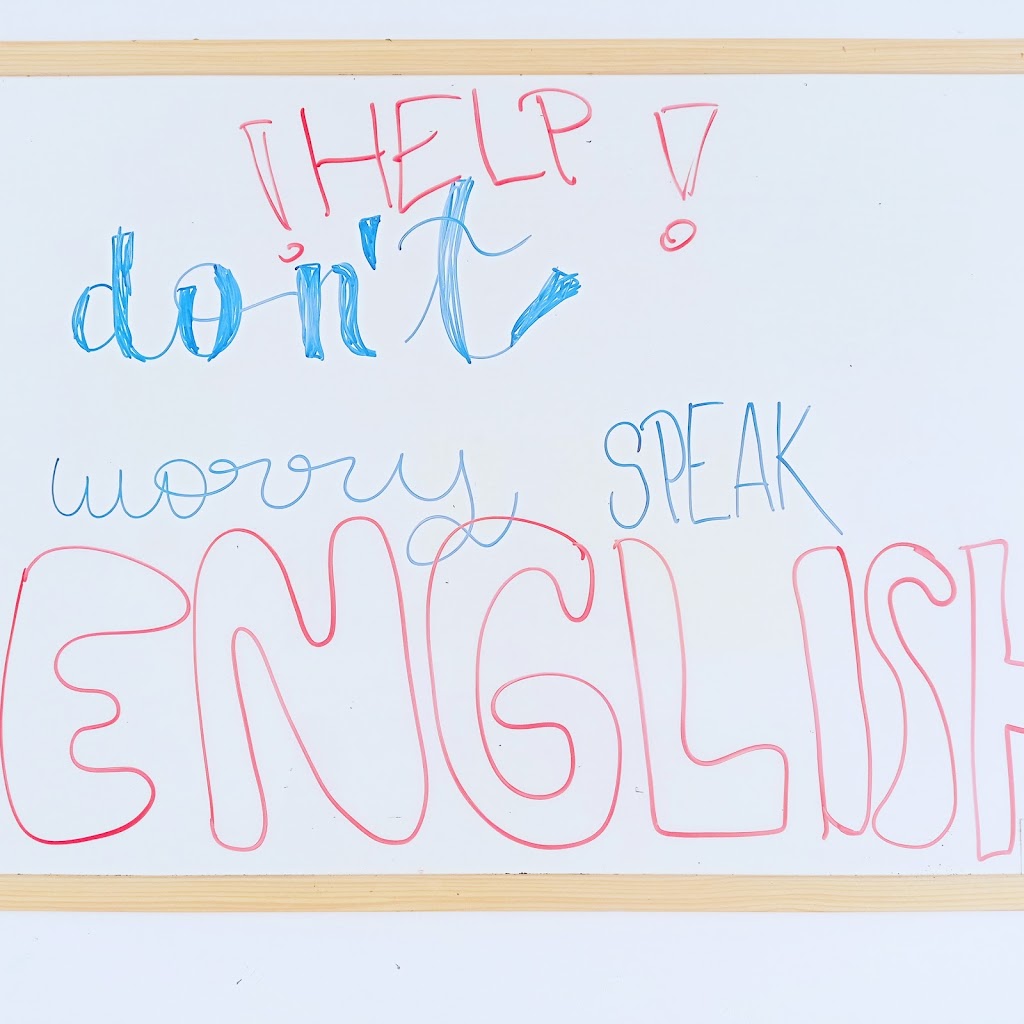 !HELP!
don't
worry SPEAK
ENGLISH